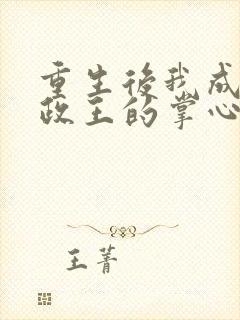 重生後我成
政王的掌心
王菁